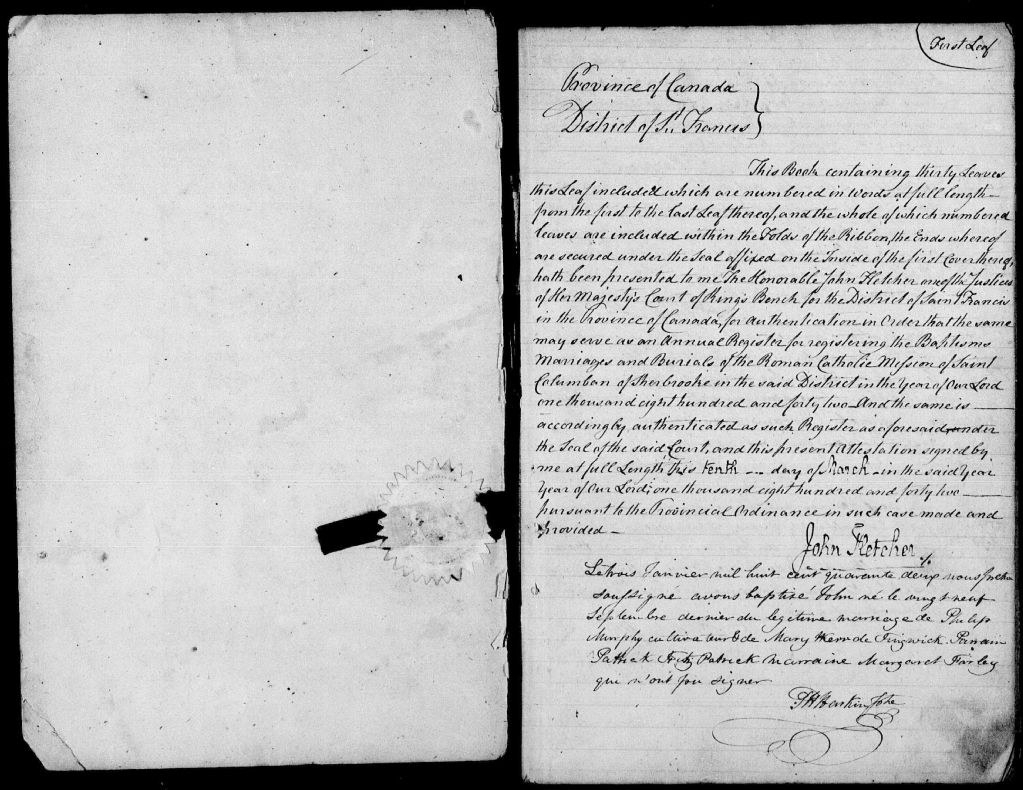 First Leaf
Province of Canada
District of St. Francis
This Book containing thirty Leaves
this Leaf included which are numbered in words at full length
from the first to the last Leaf thereof, and the whole of which numbered
leaves are included within the Folds of the Ribbon, the Ends whereof
are secured under the Seal affixed on the Inside of the first Cover thereof,
hath been presented to me The Honorable John Fletcher one of the Justices
of Her Majesty's Court of King's Bench for the District of Saint Francis
in the Province of Canada, for authentication in Order that the same
may serve as an Annual Register for registering the Baptisms
Marriages and Burials of the Roman Catholic Mission of Saint
Columban of Sherbrooke in the said District in the Year of Our Lord
one thousand eight hundred and forty two And the same is
accordingly authenticated as such Register as aforesaid, under
the Seal of the said Court, and this present Attestation signed by
me at full Length this tenth day of March in the said Year
Year of Our Lord; one thousand eight hundred and forty two
pursuant to the Provincial Ordinance in such case made and
Provided
John Fletcher
Le trois Janvier mil huit cent quarante deux nous prêtre
soussigné avons baptisé John né le vingt neuf
Septembre dernier du legitime mariage de Philip
Murphy cultivateur & de Mary de Tingwick Parrain
Patrick Fitz Patrick Marraine Margaret Farley
qui n'ont pu signer